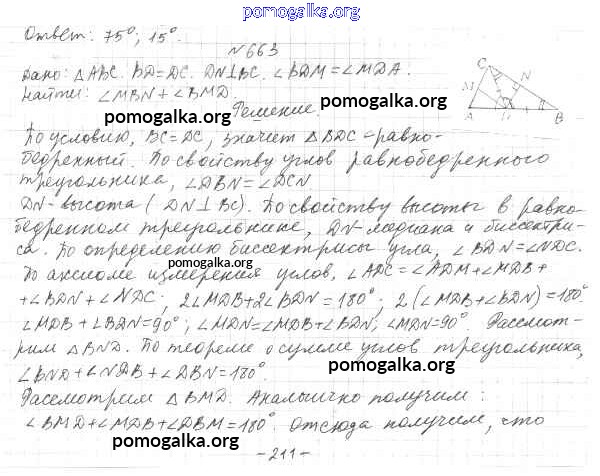 pomogalka.org
Ответ: 75°; 15°.
№663
Дано: △ABC. BD=DC. DN⊥BC. ∠BDM=∠MDA.
Найти: ∠MBN+∠BMD.
pomogalka.org
Решение.
C
M
N
A
D
B
По условию, BC=DC, значит △BDC-равно-
бедренный. По свойству углов равнобедренного
треугольника, ∠DBN=∠DCN
pomogalka.org
DN-высота (DN⊥BC). По свойству высоты в равно-
бедренном треугольнике, DN-медиана и биссектри-
са. По определению биссектрисы угла, ∠BDN=∠NDC.
pomogalka.org
По аксиоме измерения углов, ∠ADC=∠ADM+∠MDB+
+∠BDN+∠NDC; 2∠MDB+2∠BDN=180°; 2(∠MDB+∠BDN)=180°
∠MDB+∠BDN=90°; ∠MDN=∠MDB+∠BDN; ∠MDN=90°. Рассмот-
рим △BND. По теореме о сумме углов треугольника,
pomogalka.org
∠BND+∠NDB+∠DBN=180°.
pomogalka.org
Рассмотрим △BMD. Аналогично получим:
∠BMD+∠MDB+∠DBM=180°. Отсюда получим, что
pomogalka.org
-211-